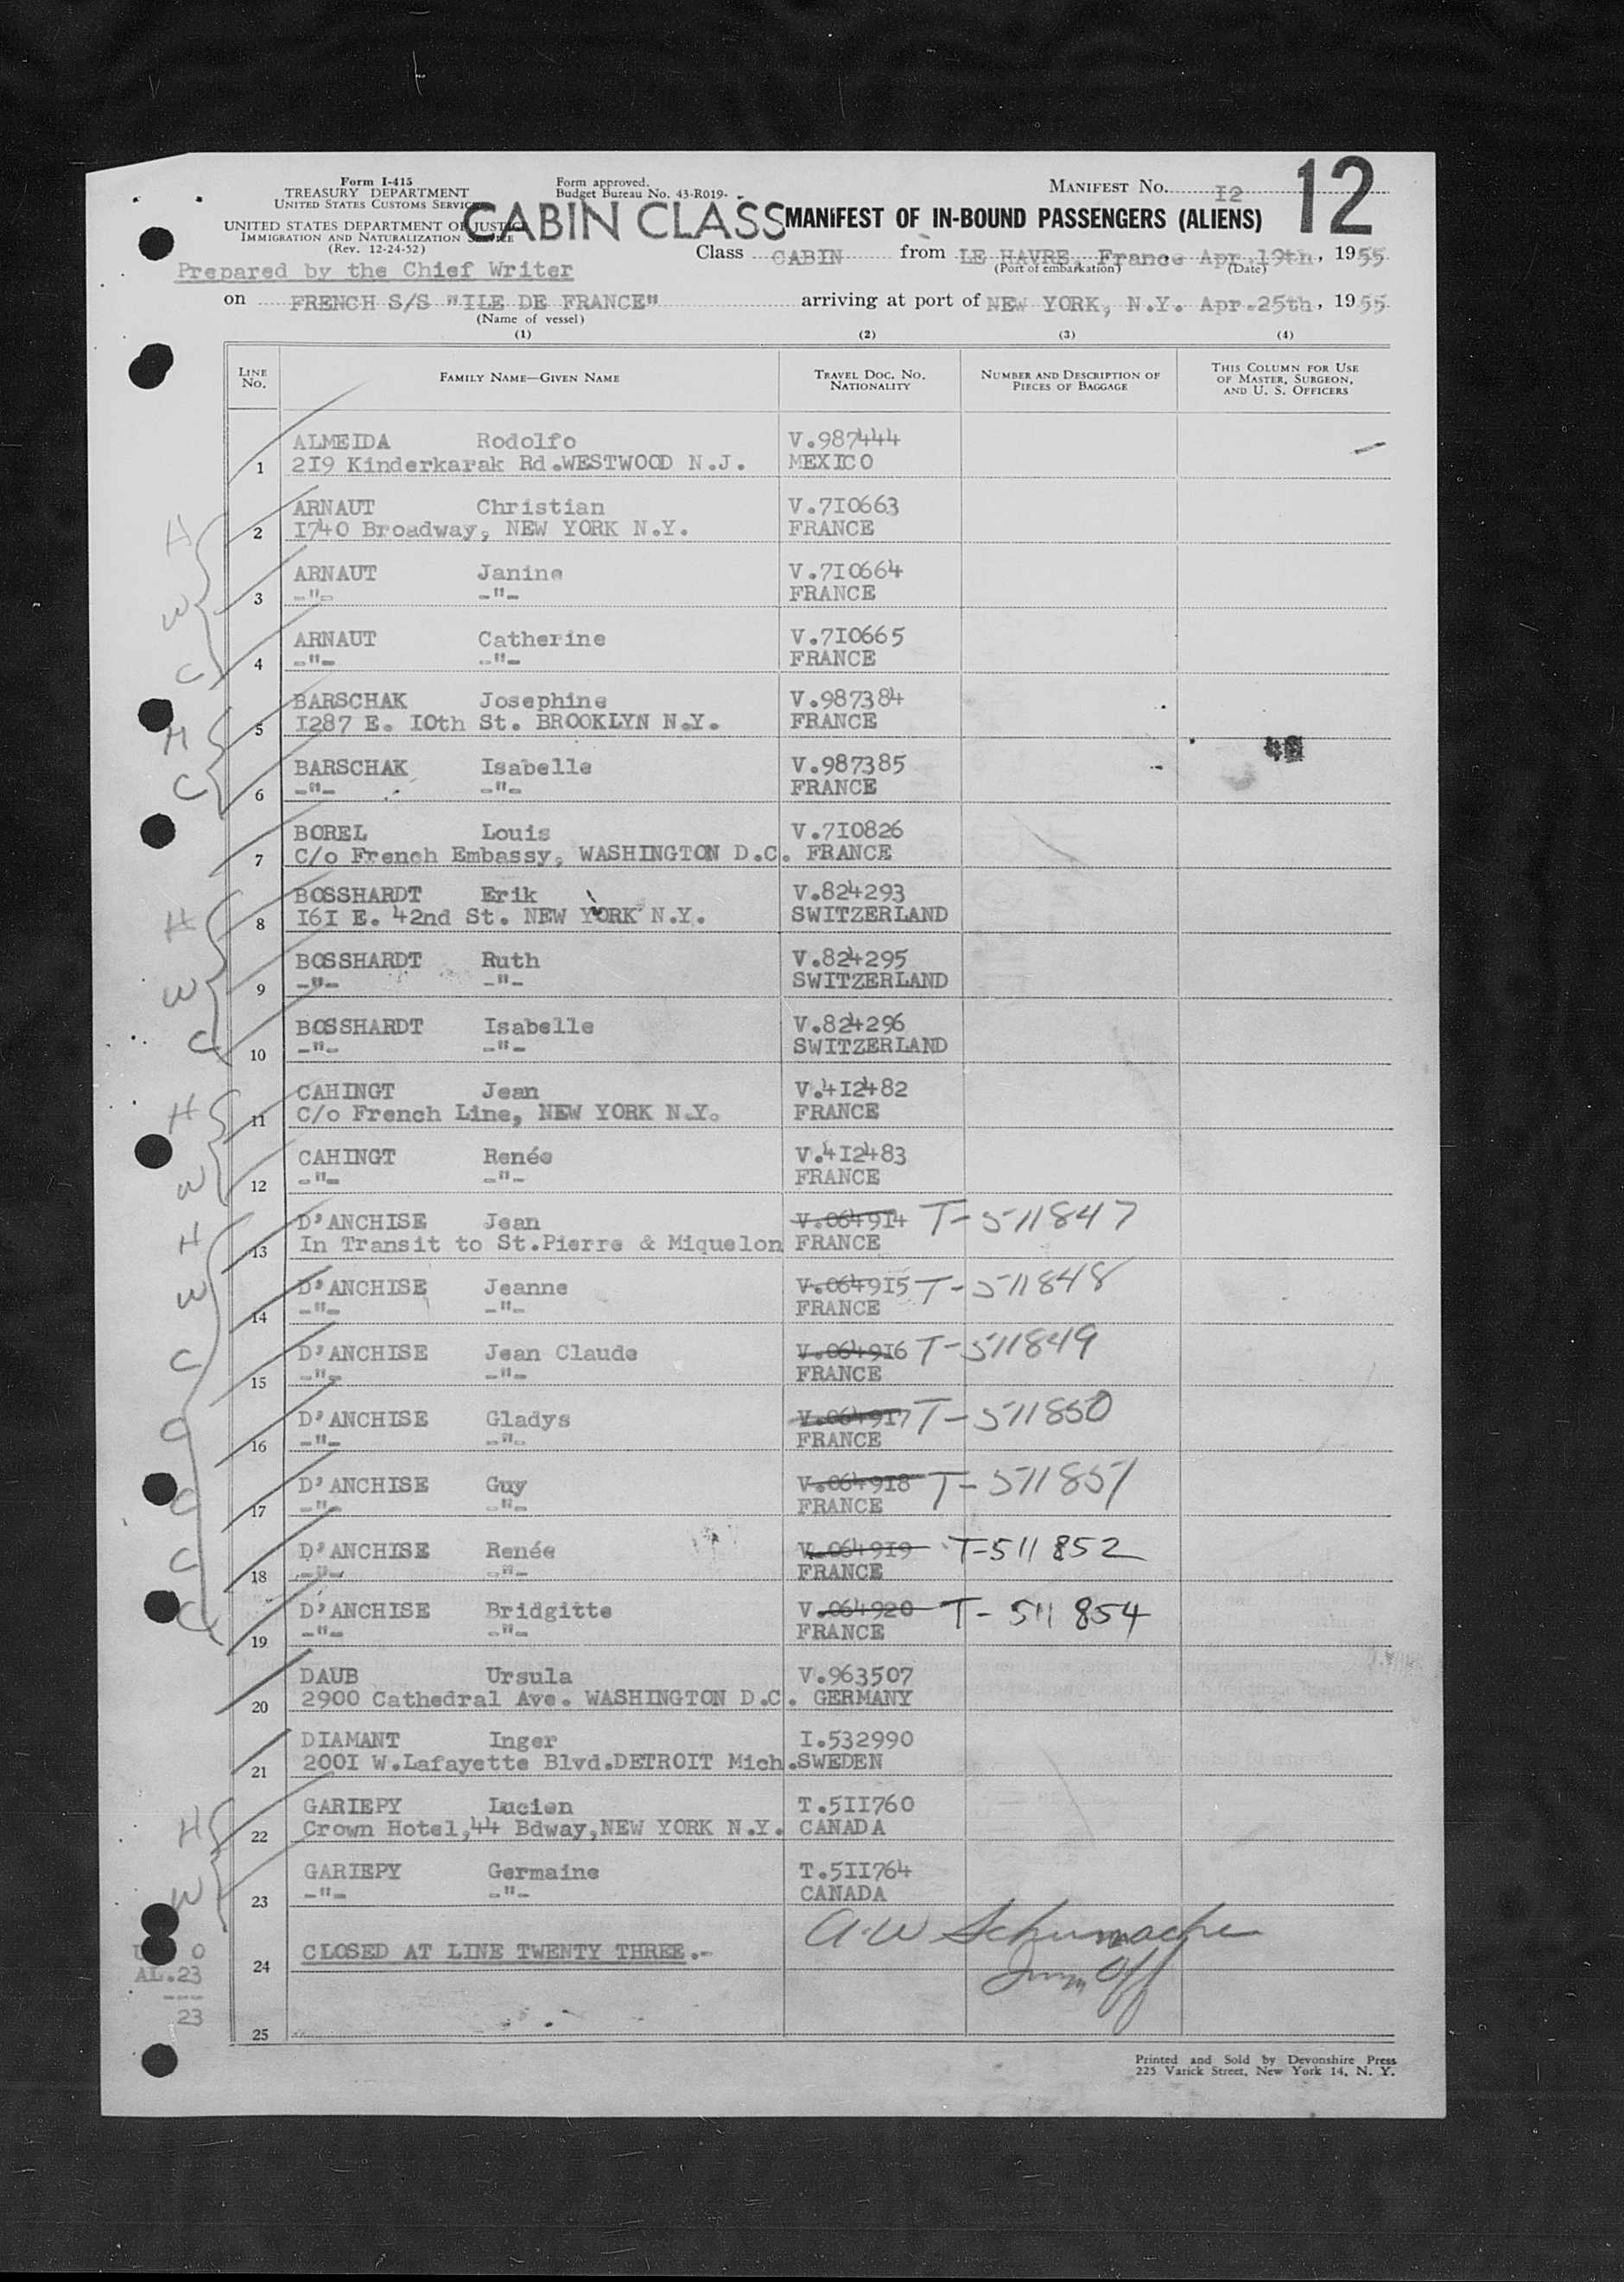 Form I-415
TREASURY DEPARTMENT
UNITED STATES CUSTOMS SERVICE
UNITED STATES DEPARTMENT OF JUSTICE
IMMIGRATION AND NATURALIZATION SERVICE
(Rev. 12-24-52)
Form approved.
Budget Bureau No. 43-R019-
MANIFEST No. I2
12
CABIN CLASS
MANIFEST OF IN-BOUND PASSENGERS (ALIENS)
Prepared by the Chief Writer
Class CABIN from LE HAVRE, France Apr.19th, 1955
(Port of embarkation) (Date)
on FRENCH S/S "ILE DE FRANCE" arriving at port of NEW YORK, N.Y. Apr.25th, 1955
(Name of vessel)
(1) (2) (3) (4)
LINE No. FAMILY NAME—GIVEN NAME TRAVEL DOC. No. NATIONALITY NUMBER AND DESCRIPTION OF PIECES OF BAGGAGE THIS COLUMN FOR USE OF MASTER, SURGEON, AND U. S. OFFICERS
ALMEIDA Rodolfo V.987444
1 2I9 Kinderkarak Rd.WESTWOOD N.J. MEXICO
ARNAUT Christian V.7I0663
H 2 I740 Broadway, NEW YORK N.Y. FRANCE
ARNAUT Janine V.7I0664
W 3 -"- -"- FRANCE
ARNAUT Catherine V.7I0665
C 4 -"- -"- FRANCE
BARSCHAK Josephine V.987384
M 5 I287 E. I0th St. BROOKLYN N.Y. FRANCE
BARSCHAK Isabelle V.987385
C 6 -"- -"- FRANCE
BOREL Louis V.7I0826
7 C/o French Embassy, WASHINGTON D.C. FRANCE
BOSSHARDT Erik V.824293
H 8 I6I E. 42nd St. NEW YORK N.Y. SWITZERLAND
BOSSHARDT Ruth V.824295
W 9 -"- -"- SWITZERLAND
BOSSHARDT Isabelle V.824296
C 10 -"- -"- SWITZERLAND
CAHINGT Jean V.4I2482
H 11 C/o French Line, NEW YORK N.Y. FRANCE
CAHINGT Renée V.4I2483
W 12 -"- -"- FRANCE
D'ANCHISE Jean V.0649I4 T-511847
H 13 In Transit to St.Pierre & Miquelon FRANCE
D'ANCHISE Jeanne V.0649I5 T-511848
W 14 -"- -"- FRANCE
D'ANCHISE Jean Claude V.0649I6 T-511849
C 15 -"- -"- FRANCE
D'ANCHISE Gladys V.0649I7 T-511850
C 16 -"- -"- FRANCE
D'ANCHISE Guy V.0649I8 T-511851
C 17 -"- -"- FRANCE
D'ANCHISE Renée V.0649I9 T-511852
C 18 -"- -"- FRANCE
D'ANCHISE Bridgitte V.064920 T-511854
C 19 -"- -"- FRANCE
DAUB Ursula V.963507
20 2900 Cathedral Ave. WASHINGTON D.C. GERMANY
DIAMANT Inger I.532990
21 200I W.Lafayette Blvd.DETROIT Mich.SWEDEN
GARIEPY Lucien T.5II760
H 22 Crown Hotel,44 Bdway,NEW YORK N.Y. CANADA
GARIEPY Germaine T.5II764
W 23 -"- -"- CANADA
A.W Schumacher
0
24 CLOSED AT LINE TWENTY THREE.-
AL.23
Imm Off
---
23
25
Printed and Sold by Devonshire Press
225 Varick Street, New York 14, N. Y.